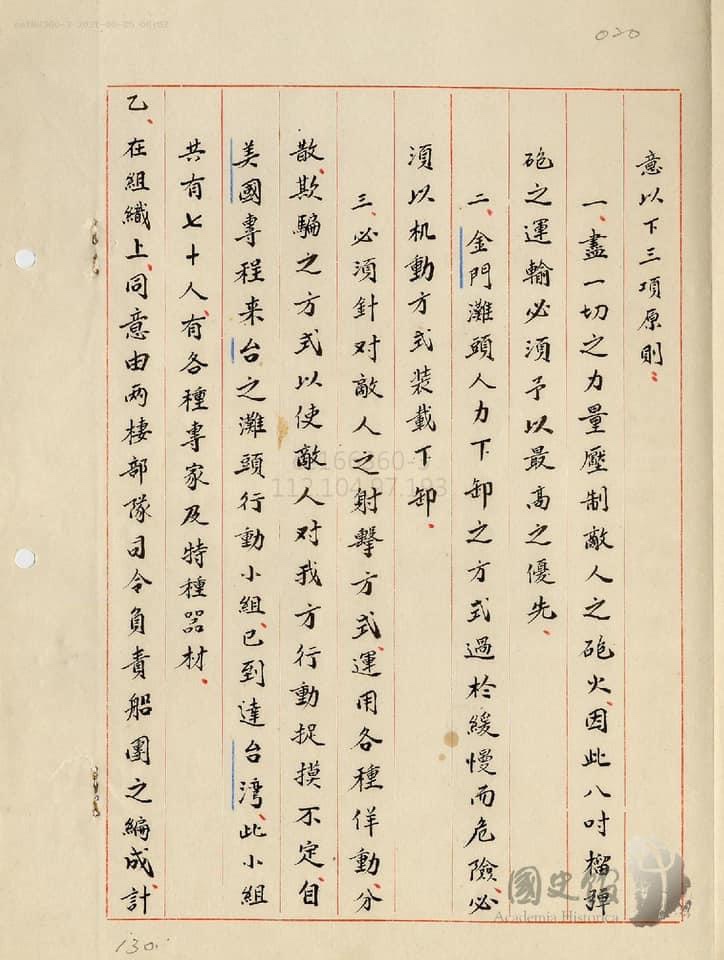 020
意以下三項原則：
一、盡一切之力量壓制敵人之砲火、因此八吋榴彈
砲之運輸必須予以最高之優先、
二、金門灘頭人力下卸之方式過於緩慢而危險、必
須以机動方式裝載下卸、
三、必須針对敵人之射擊方式、運用各種佯動分
散、欺騙之方式以使敵人对我方行動捉摸不定、自
美國專程来台之灘頭行動小組、已到達台湾、此小組
共有七十人、有各種專家及特種器材、
乙、在組織上、同意由两棲部隊司令負責船團之編成、計
130
國史館
Academia Historica
112.104.97.193